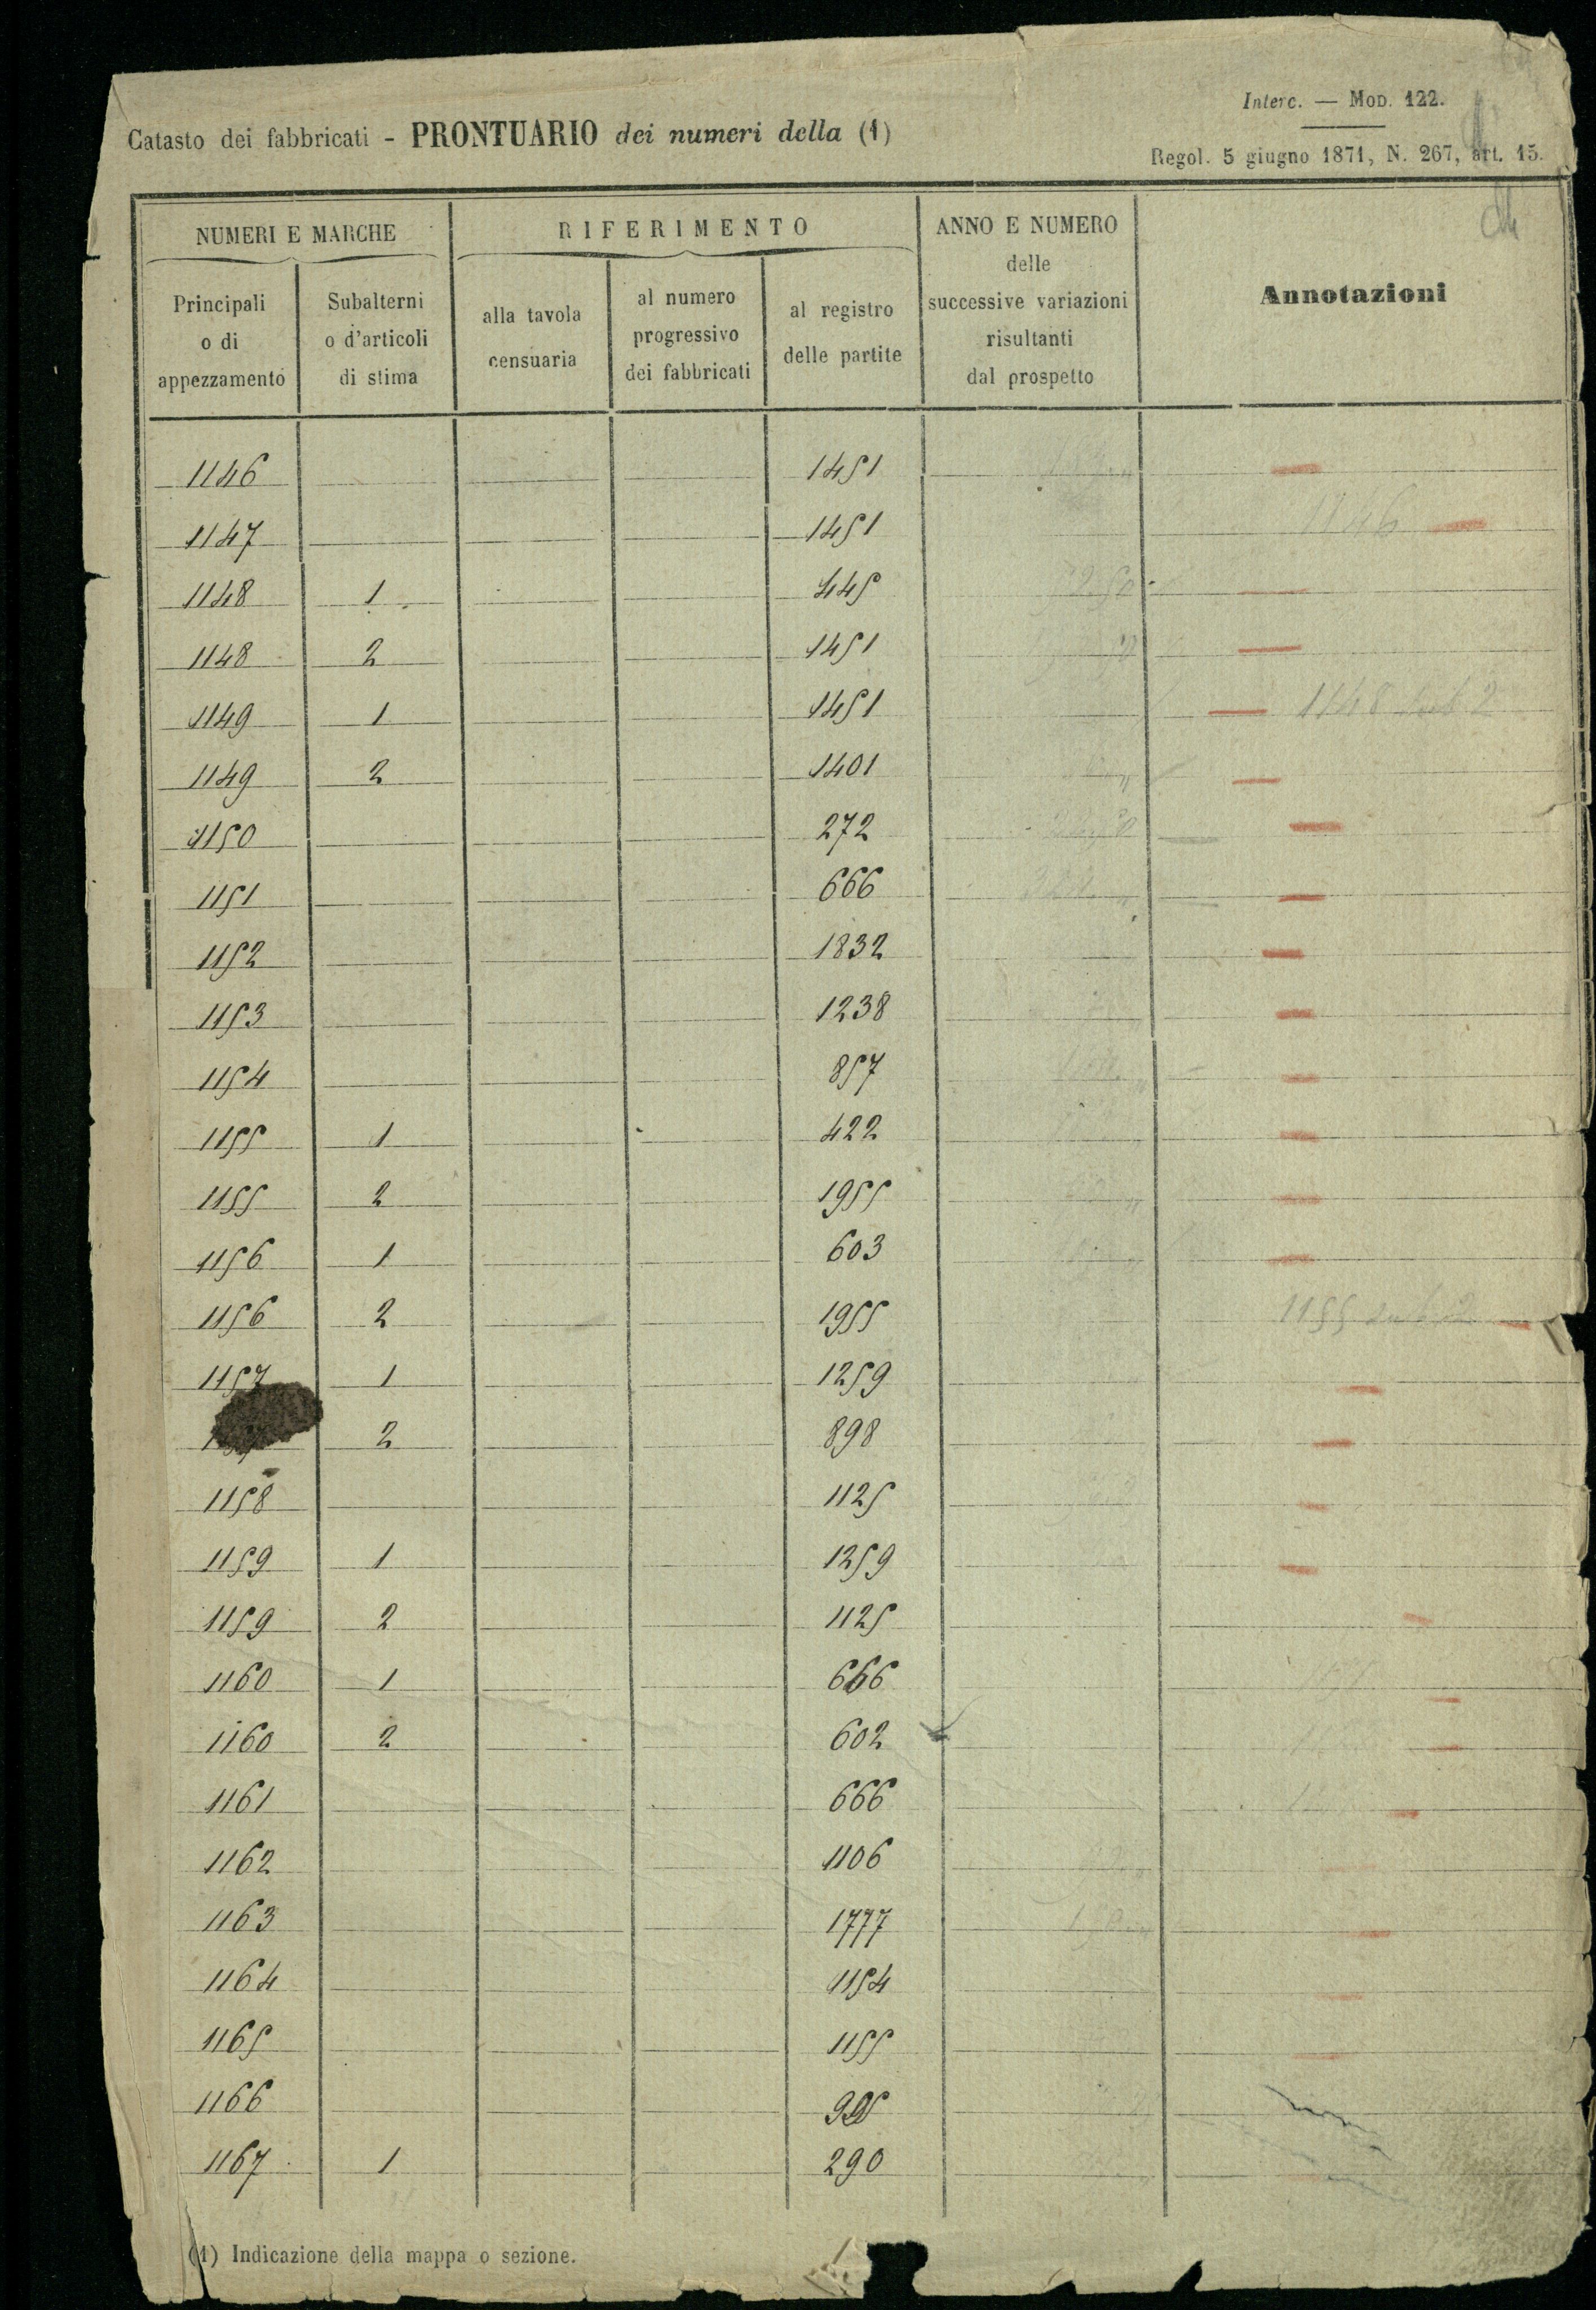 Interc. — Mod. 122.
Catasto dei fabbricati - PRONTUARIO dei numeri della (1)
Regol. 5 giugno 1871, N. 267, art. 15.
NUMERI E MARCHE RIFERIMENTO ANNO E NUMERO delle successive variazioni risultanti dal prospetto Annotazioni
Principali o di appezzamento Subalterni o d'articoli di stima alla tavola censuaria al numero progressivo dei fabbricati al registro delle partite
1146 1451
1147 1451 1146
1148 1 445
1148 2 1451
1149 1 1451 1148 sub 2
1149 2 1401
1150 272
1151 666
1152 1832
1153 1238
1154 857
1155 1 422
1155 2 1955
1156 1 603
1156 2 1955 1155 sub 2
1157 1 1259
2 898
1158 1125
1159 1 1259
1159 2 1125
1160 1 666
1160 2 602
1161 666
1162 1106
1163 1777
1164 1154
1165 1155
1166
1167 1 290
(1) Indicazione della mappa o sezione.